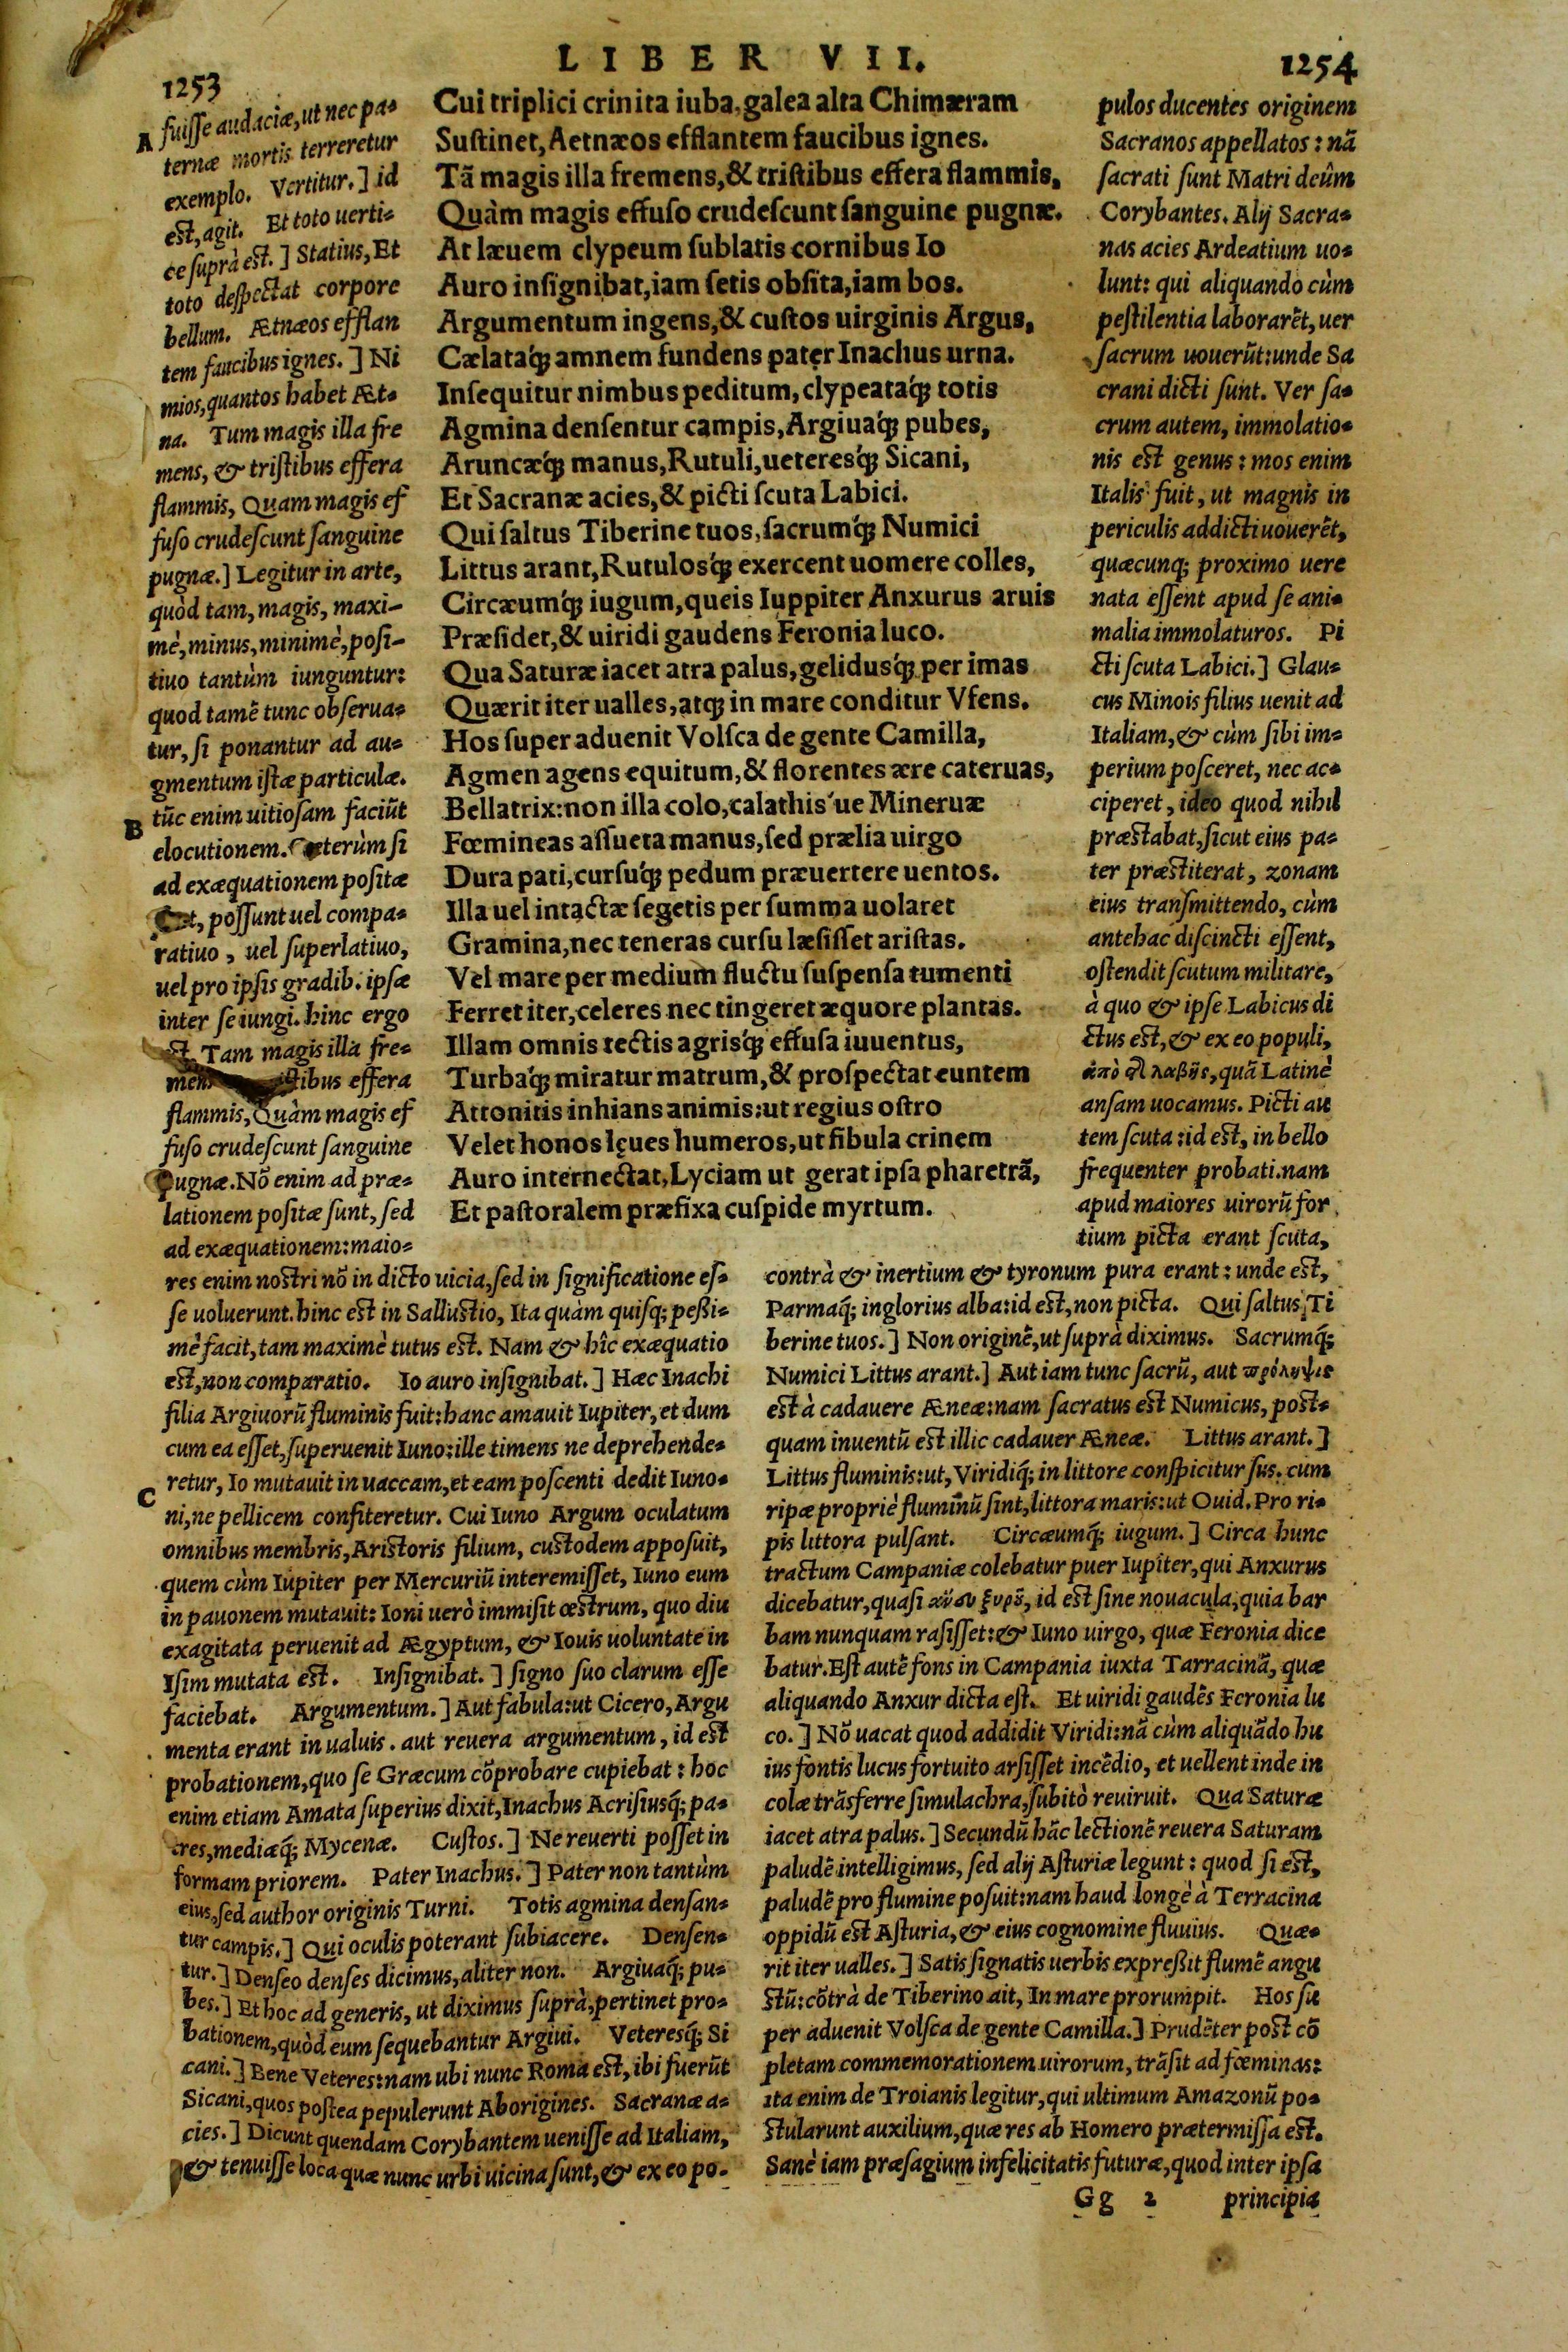 LIBER VII.
1253
1254
fuisse audaciæ, ut nec pa-
A
ternæ mortis terreretur
exemplo. Vertitur.] id
est, agit. Et toto uerti-
ce suprà est.] Statius, Et
toto despectat corpore
bellum. Ætnæos efflan
tem faucibus ignes.] Ni
mios, quantos habet Æt-
na. Tum magis illa fre
mens, & tristibus effera
flammis, Quam magis ef
fuso crudescunt sanguine
pugnæ.] Legitur in arte,
quòd tam, magis, maxi-
mè, minus, minimè, posi-
tiuo tantùm iunguntur:
quod tamẽ tunc obserua-
tur, si ponantur ad au-
gmentum istæ particulæ.
tũc enim uitiosam faciũt
B
elocutionem. Cæterùm si
ad exæquationem positæ
possunt uel compa-
ratiuo, uel superlatiuo,
uel pro ipsis gradib. ipsæ
inter se iungi. hinc ergo
Tam magis illa fre-
effera
flammis, Quàm magis ef
fuso crudescunt sanguine
pugnæ. Nõ enim ad præ-
lationem positæ sunt, sed
ad exæquationem: maio-
Cui triplici crinita iuba, galea alta Chimæram
Sustinet, Aetnæos efflantem faucibus ignes.
Tã magis illa fremens, & tristibus effera flammis,
Quàm magis effuso crudescunt sanguine pugnæ.
At læuem clypeum sublatis cornibus Io
Auro insignibat, iam setis obsita, iam bos.
Argumentum ingens, & custos uirginis Argus,
Cælataq́ue amnem fundens pater Inachus urna.
Insequitur nimbus peditum, clypeataq́ue totis
Agmina densentur campis, Argiuaq́ue pubes,
Aruncæq́ue manus, Rutuli, ueteresq́ue Sicani,
Et Sacranæ acies, & picti scuta Labici.
Qui saltus Tiberine tuos, sacrumq́ue Numici
Littus arant, Rutulosq́ue exercent uomere colles,
Circæumq́ue iugum, queis Iuppiter Anxurus aruis
Præsidet, & uiridi gaudens Feronia luco.
Qua Saturæ iacet atra palus, gelidusq́ue per imas
Quærit iter ualles, atq́ue in mare conditur Vfens.
Hos super aduenit Volsca de gente Camilla,
Agmen agens equitum, & florentes ære cateruas,
Bellatrix: non illa colo, calathis'ue Mineruæ
Fœmineas assueta manus, sed prælia uirgo
Dura pati, cursuq́ue pedum præuertere uentos.
Illa uel intactæ segetis per summa uolaret
Gramina, nec teneras cursu læsisset aristas.
Vel mare per medium fluctu suspensa tumenti
Ferret iter, celeres nec tingeret æquore plantas.
Illam omnis tectis agrisq́ue effusa iuuentus,
Turbaq́ue miratur matrum, & prospectat euntem
Attonitis inhians animis: ut regius ostro
Velet honos lęues humeros, ut fibula crinem
Auro internectat, Lyciam ut gerat ipsa pharetrã,
Et pastoralem præfixa cuspide myrtum.
pulos ducentes originem
Sacranos appellatos: nã
sacrati sunt Matri deûm
Corybantes. Alij Sacra-
nas acies Ardeatium uo-
lunt: qui aliquando cùm
pestilentia laborarẽt, uer
sacrum uouerũt: unde Sa
crani dicti sunt. Ver sa-
crum autem, immolatio-
nis est genus: mos enim
Italis fuit, ut magnis in
periculis addicti uouerẽt,
quæcunq; proximo uere
nata essent apud se ani-
malia immolaturos. Pi
cti scuta Labici.] Glau-
cus Minois filius uenit ad
Italiam, & cùm sibi im-
perium posceret, nec ac-
ciperet, ideo quod nihil
præstabat, sicut eius pa-
ter præstiterat, zonam
eius transmittendo, cùm
antehac discincti essent,
ostendit scutum militare,
à quo & ipse Labicus di
ctus est, & ex eo populi,
ἀπὸ τῆς λαβῆς, quã Latinè
ansam uocamus. Picti au
tem scuta: id est, in bello
frequenter probati. nam
apud maiores uirorũ for
tium picta erant scuta,
res enim nostri nõ in dicto uicia, sed in significatione es-
se uoluerunt. hinc est in Sallustio, Ita quàm quisq; peßi-
mè facit, tam maximè tutus est. Nam & hîc exæquatio
est, non comparatio. Io auro insignibat.] Hæc Inachi
filia Argiuorũ fluminis fuit: hanc amauit Iupiter, et dum
cum ea esset, superuenit Iuno: ille timens ne deprehende-
retur, Io mutauit in uaccam, et eam poscenti dedit Iuno-
C
ni, ne pellicem confiteretur. Cui Iuno Argum oculatum
omnibus membris, Aristoris filium, custodem apposuit,
quem cùm Iupiter per Mercuriũ interemisset, Iuno eum
in pauonem mutauit: Ioni uerò immisit œstrum, quo diu
exagitata peruenit ad Ægyptum, & Iouis uoluntate in
Isim mutata est. Insignibat.] signo suo clarum esse
faciebat. Argumentum.] Aut fabula: ut Cicero, Argu
menta erant in ualuis. aut reuera argumentum, id est
probationem, quo se Græcum cõprobare cupiebat: hoc
enim etiam Amata superius dixit, Inachus Acrisiusq́; pa-
tres, mediæq́; Mycenæ. Custos.] Ne reuerti posset in
formam priorem. Pater Inachus.] Pater non tantùm
eius, sed author originis Turni. Totis agmina densan-
tur campis.] Qui oculis poterant subiacere. Densen-
tur.] Denseo denses dicimus, aliter non. Argiuaq́; pu-
bes.] Et hoc ad generis, ut diximus suprà, pertinet pro-
bationem, quòd eum sequebantur Argiui. Veteresq́; Si
cani.] Bene Veteres: nam ubi nunc Roma est, ibi fuerũt
Sicani, quos postea pepulerunt Aborigines. Sacranæ a-
cies.] Dicunt quendam Corybantem uenisse ad Italiam,
& tenuisse loca quæ nunc urbi uicina sunt, & ex eo po-
contrà & inertium & tyronum pura erant: unde est,
Parmaq́; inglorius alba: id est, non picta. Qui saltus Ti
berine tuos.] Non originẽ, ut suprà diximus. Sacrumq́;
Numici Littus arant.] Aut iam tunc sacrũ, aut πρόληψις
est à cadauere Æneæ: nam sacratus est Numicus, post-
quam inuentũ est illic cadauer Æneæ. Littus arant.]
Littus fluminis: ut, Viridiq́; in littore conspicitur sus. cùm
ripæ propriè fluminũ sint, littora maris: ut Ouid. Pro ri-
pis littora pulsant. Circæumq́; iugum.] Circa hunc
tractum Campaniæ colebatur puer Iupiter, qui Anxurus
dicebatur, quasi ἄνευ ξυροῦ, id est sine nouacula, quia bar
bam nunquam rasisset: & Iuno uirgo, quæ Feronia dice
batur. Est autẽ fons in Campania iuxta Tarracinã, quæ
aliquando Anxur dicta est. Et uiridi gaudẽs Feronia lu
co.] Nõ uacat quod addidit Viridi: nã cùm aliquãdo hu
ius fontis lucus fortuito arsisset incẽdio, et uellent inde in
colæ trãsferre simulachra, subitò reuiruit. Qua Saturæ
iacet atra palus.] Secundũ hãc lectionẽ reuera Saturam
paludẽ intelligimus, sed alij Asturiæ legunt: quod si est,
paludẽ pro flumine posuit: nam haud longè à Terracina
oppidũ est Asturia, & eius cognomine fluuius. Quæ-
rit iter ualles.] Satis signatis uerbis expreßit flumẽ angu
stũ: cõtrà de Tiberino ait, In mare prorumpit. Hos su
per aduenit Volsca de gente Camilla.] Prudẽter post cõ
pletam commemorationem uirorum, trãsit ad fœminas:
ita enim de Troianis legitur, qui ultimum Amazonũ po-
stularunt auxilium, quæ res ab Homero prætermissa est.
Sanè iam præsagium infelicitatis futuræ, quod inter ipsa
Gg 2 principia